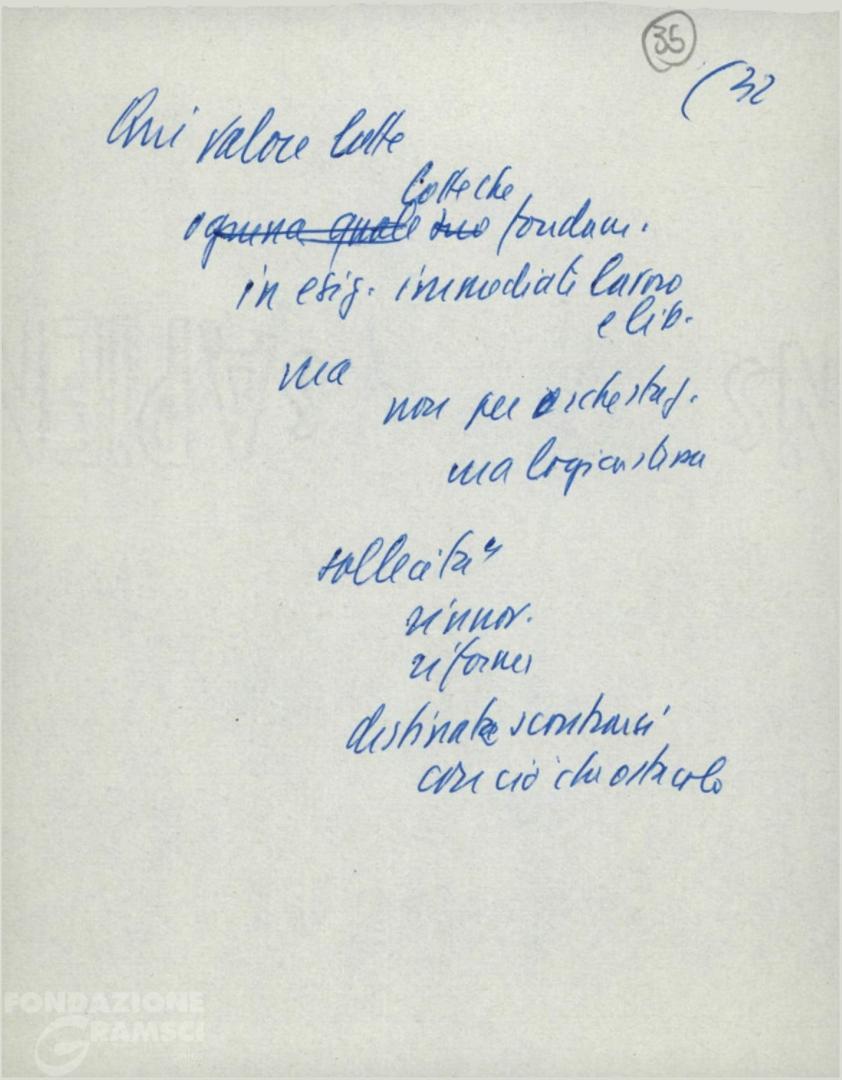 35
(32
Qui valore lotte
lotte che
ognuna quale suo fondam.
in esig. immediati lavoro
e lib.
ma
non per orchestraz.
ma logica stessa
sollecita
rinnov.
riforme
destinate scontrarsi
con ciò che ostacolo
FONDAZIONE
GRAMSCI